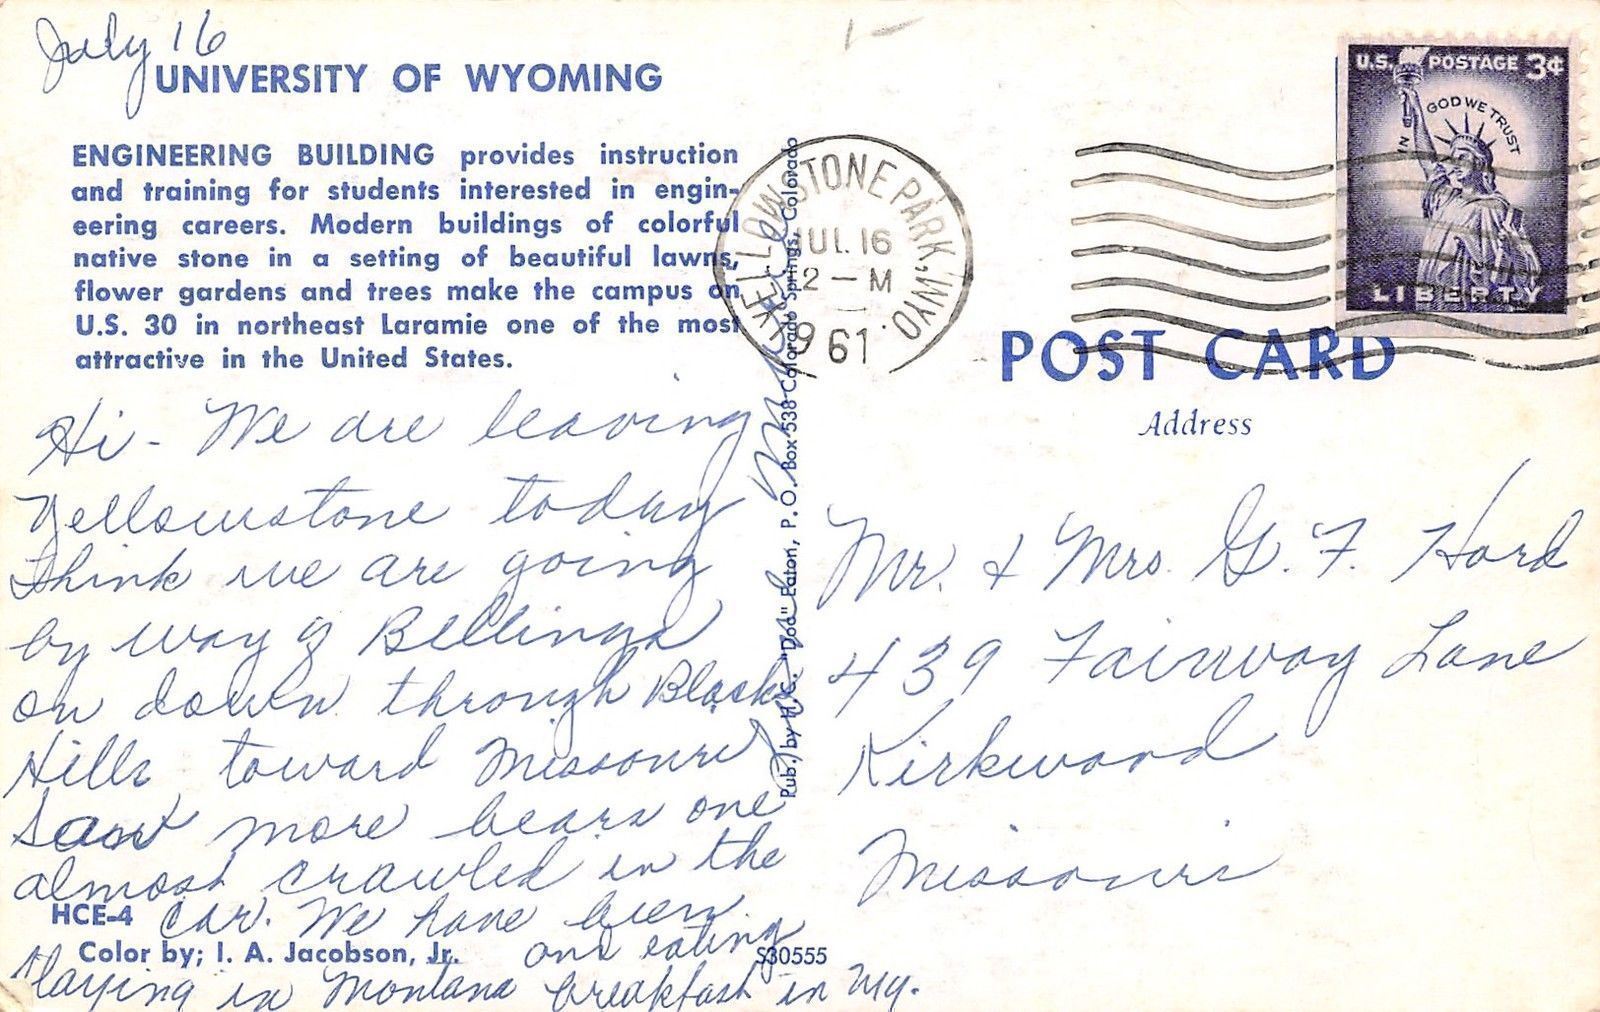 July 16
UNIVERSITY OF WYOMING
ENGINEERING BUILDING provides instruction
and training for students interested in engin-
eering careers. Modern buildings of colorful
native stone in a setting of beautiful lawns,
flower gardens and trees make the campus on
U.S. 30 in northeast Laramie one of the most
attractive in the United States.
Hi - We are leaving
Yellowstone today
think we are going
by way of Billings
on down through Black
Hills toward Missouri
Saw more bears one
almost crawled in the
car. We have been
staying in Montana and eating
breakfast in Wy.
HCE-4
Color by; I. A. Jacobson, Jr.
S30555
Pub. by H.C. "Dod" Eaton, P. O. Box 538 Colorado Springs, Colorado
YELLOWSTONE PARK, WYO.
JUL 16
2 - M
1961
U.S. POSTAGE 3¢
IN GOD WE TRUST
LIBERTY
POST CARD
Address
Mr. & Mrs. G. F. Hord
439 Fairway Lane
Kirkwood
Missouri